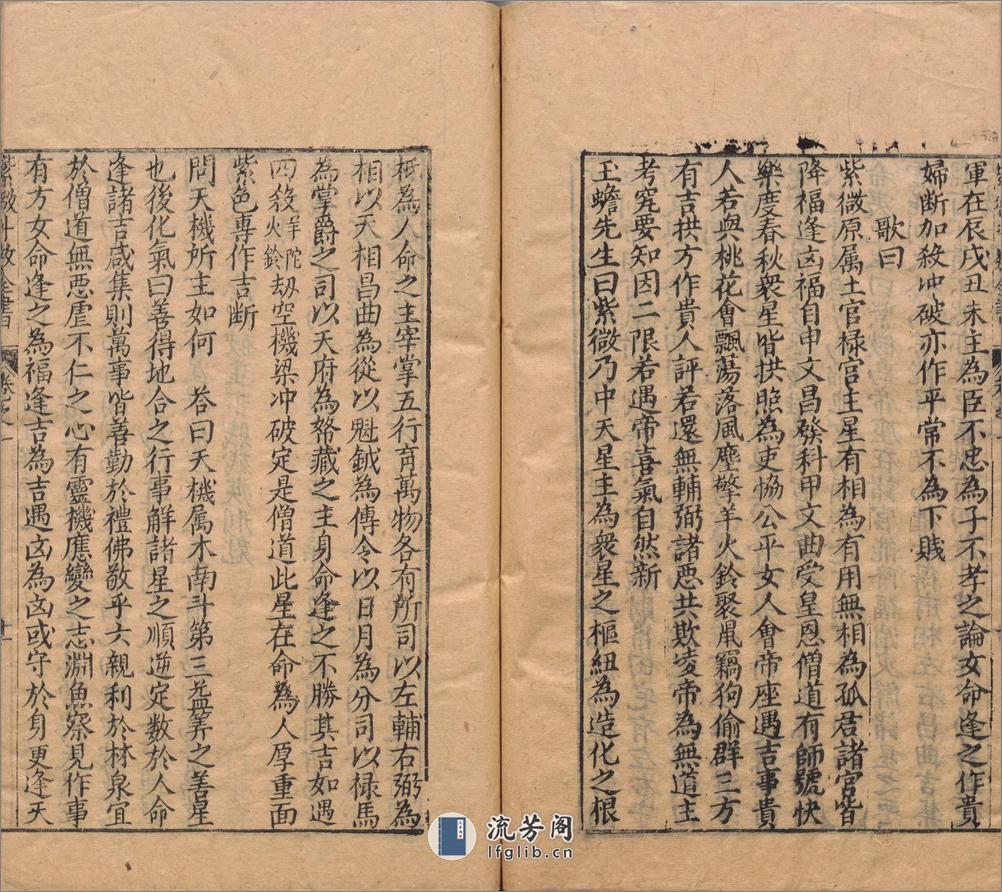 軍在辰戌丑未主為臣不忠為子不孝之論女命逢之作貴
婦斷加殺冲破亦作平常不為下賎
歌曰
紫微原属土官禄宫主星有相為有用無相為孤君諸宫皆
降福逢凶福自申文昌發科甲文曲受皇恩僧道有師號快
樂度春秋衆星皆拱照為吏恊公平女人會帝座遇吉事貴
人若與桃花會飄蕩落風塵擎羊火鈴聚鼠竊狗偷群三方
有吉拱方作貴人評若還無輔弼諸惡共欺凌帝為無道主
考究要知因二限若遇帝喜氣自然新
玉蟾先生曰紫微乃中天星主為衆星之樞紐為造化之根
柢為人命之主宰掌五行育萬物各有所司以左輔右弼為
相以天相昌曲為從以魁鉞為傳令以日月為分司以禄馬
為掌爵之司以天府為帑藏之主身命逢之不勝其吉如遇
四殺羊陀火鈴劫空機梁冲破定是僧道此星在命為人厚重面
紫色專作吉斷
問天機所主如何 荅曰天機属木南斗第三益筭之善星
也後化氣曰善得地合之行事解諸星之順逆定數於人命
逢諸吉咸集則萬事皆善勤於禮佛敬乎六親利於林泉宜
於僧道無惡虐不仁之心有靈機應變之志淵魚察見作事
有方女命逢之為福逢吉為吉遇凶為凶或守於身更逢天
紫微斗數全書 卷之一
流芳阁
lfglib.cn